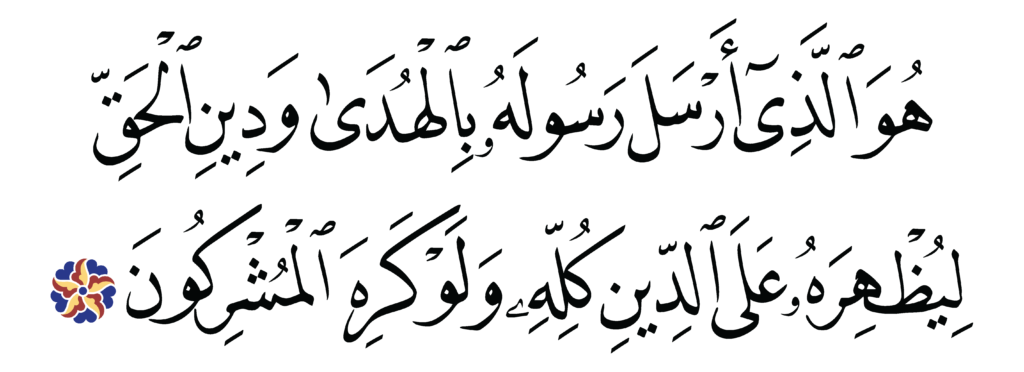 هُوَ ٱلَّذِىٓ أَرْسَلَ رَسُولَهُۥ بِٱلْهُدَىٰ وَدِينِ ٱلْحَقِّ
لِيُظْهِرَهُۥ عَلَى ٱلدِّينِ كُلِّهِۦ وَلَوْ كَرِهَ ٱلْمُشْرِكُونَ